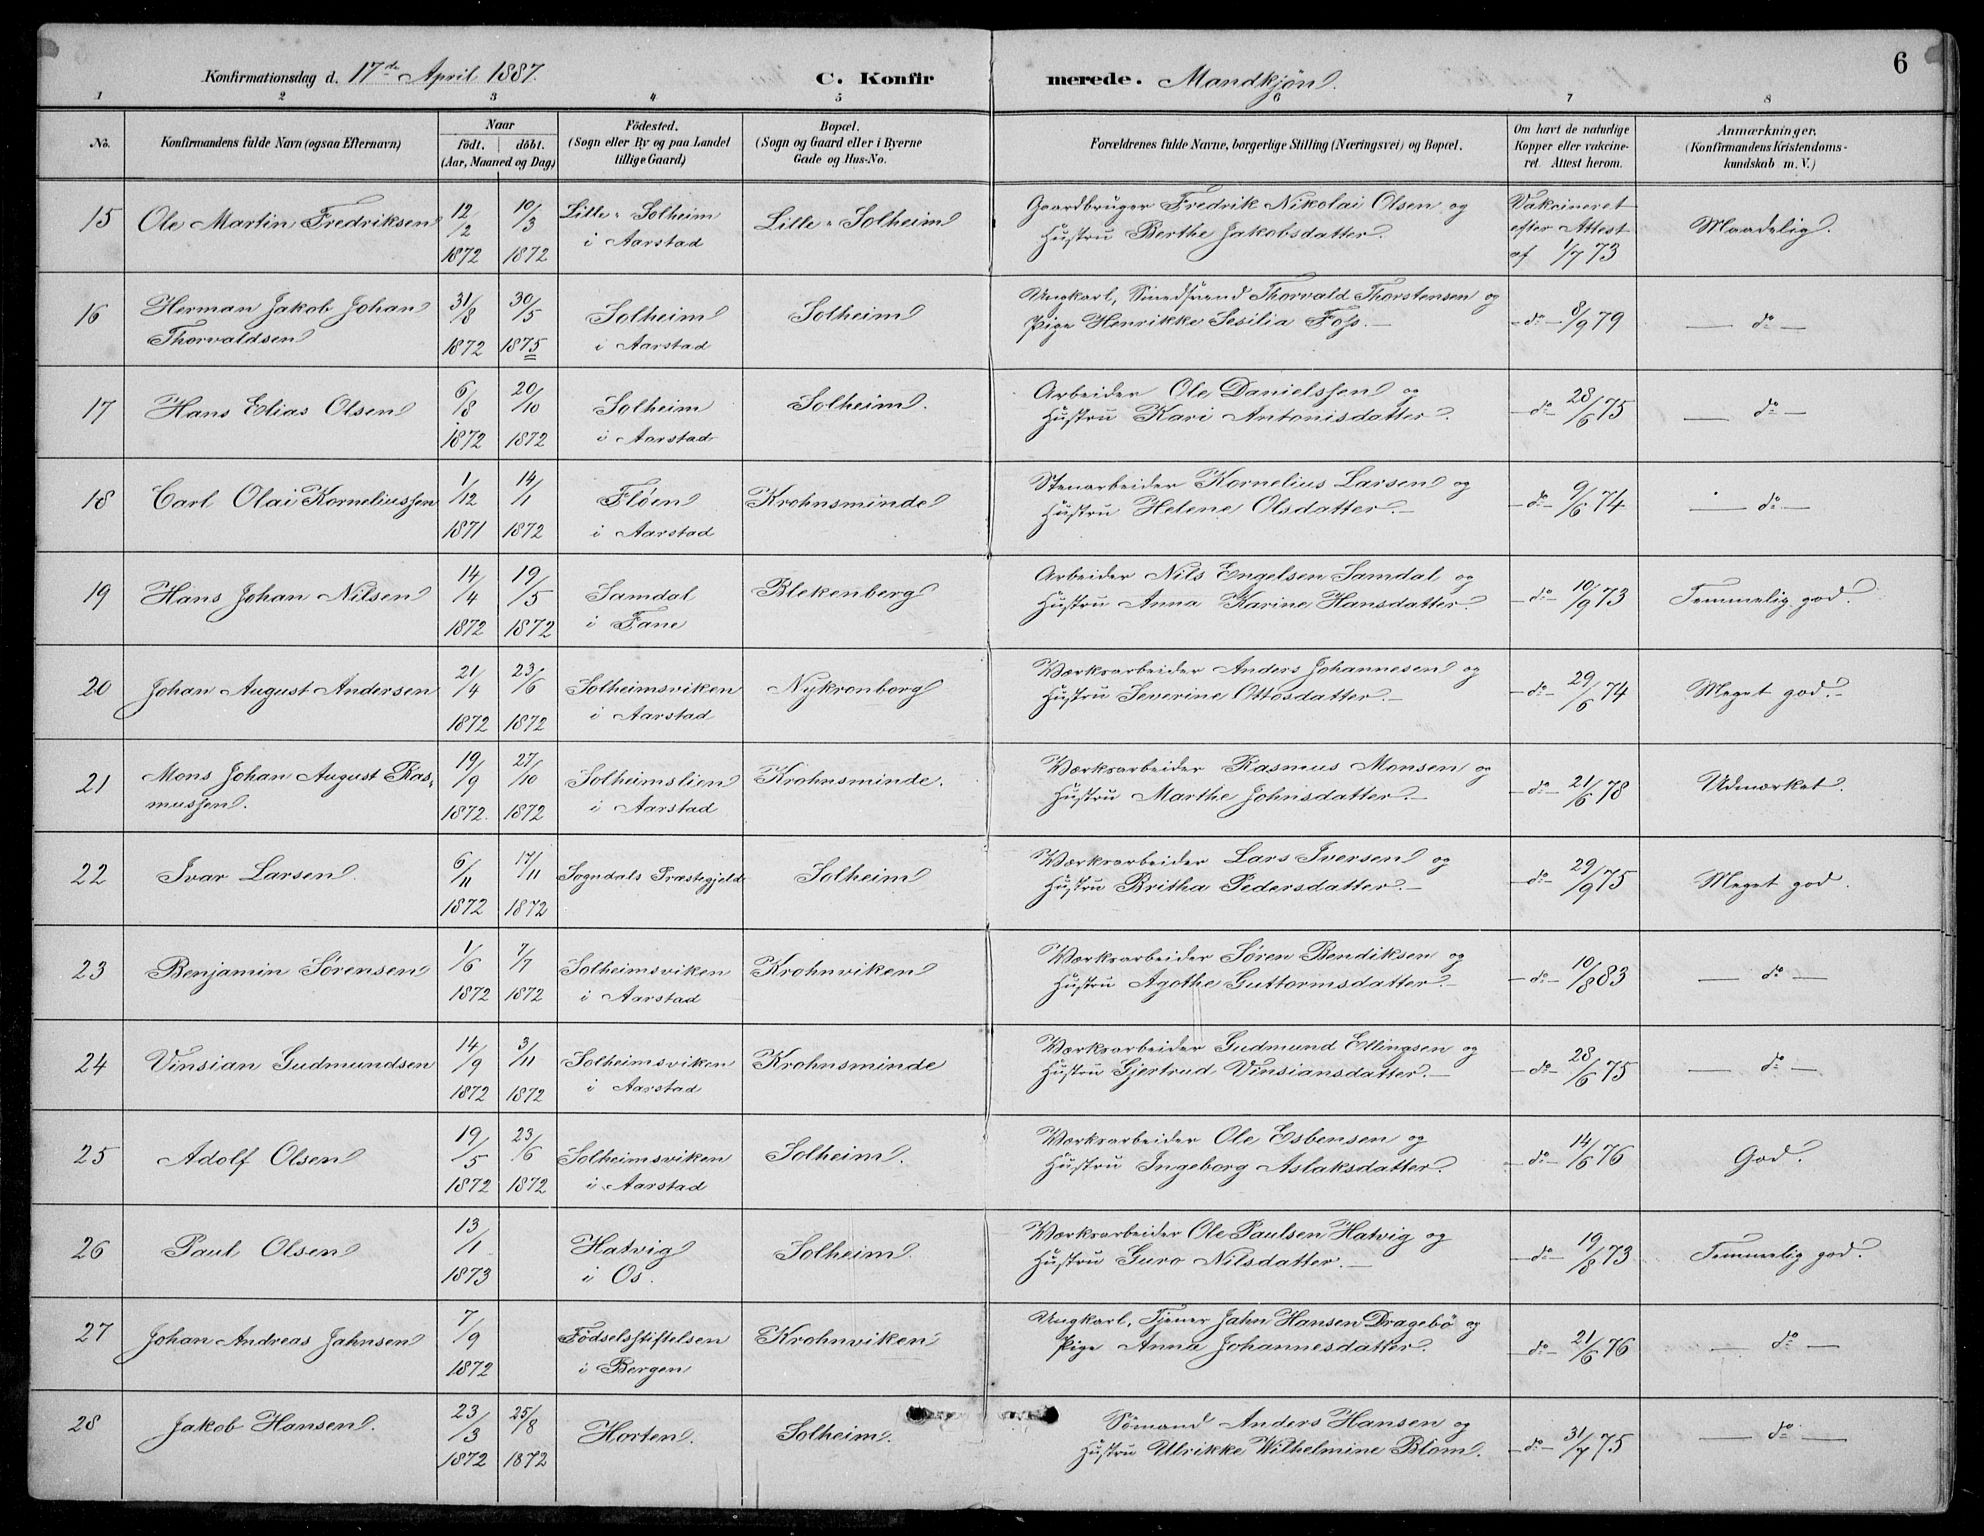 6
Konfirmationsdag d. 17de April 1887. C. Konfirmerede. Mandkjøn.
1 2 3 4 5 6 7 8
No. | Konfirmandens fulde Navn (ogsaa Efternavn) | Naar født. døbt. (Aar, Maaned og Dag) | Fødested. (Sogn eller By og paa Landet tillige Gaard) | Bopæl. (Sogn og Gaard eller i Byerne Gade og Hus-No. | Forældrenes fulde Navne, borgerlige Stilling (Næringsvei) og Bopæl. | Om havt de naturlige Kopper eller vakcineret. Attest herom. | Anmærkninger. (Konfirmandens Kristendomskundskab m. V.)
15 | Ole Martin Fredriksen | 12/2 1872 | 10/3 1872 | Lille-Solheim i Aarstad | Lille-Solheim | Gaardbruger Fredrik Nikolai Olsen og Hustru Berthe Jakobsdatter. | Vakcineret efter Attest af 1/7 73 | Maadelig.
16 | Herman Jakob Johan Thorvaldsen | 31/8 1872 | 30/5 1875 | Solheim i Aarstad | Solheim | Ungkarl, Smedsvend Thorvald Thorstensen og Pige Henrikke Sesilia Foss.— | —do— 8/9 79 | — do —
17 | Hans Elias Olsen | 6/8 1872 | 20/10 1872 | Solheim i Aarstad | Solheim. | Arbeider Ole Danielssen og Hustru Kari Antonisdatter. | —do— 28/6 75 | — do —
18 | Carl Olai Korneliussen | 1/12 1871 | 14/1 1872 | Fløen i Aarstad | Krohnsminde | Stenarbeider Kornelius Larsen og Hustru Helene Olsdatter.— | —do— 9/6 74 | — do —
19 | Hans Johan Nilsen | 14/4 1872 | 19/5 1872 | Samdal i Fane | Blekenberg | Arbeider Nils Engelsen Samdal og Hustru Anna Karine Hansdatter. | —do— 10/9 73 | Temmelig god.
20 | Johan August Andersen | 21/4 1872 | 23/6 1872 | Solheimsviken i Aarstad | Nykronborg | Værksarbeider Anders Johannesen og Hustru Severine Ottosdatter.— | —do— 29/6 74 | Meget god.—
21 | Mons Johan August Rasmussen. | 19/9 1872. | 27/10 1872 | Solheimslien i Aarstad | Krohnsminde. | Værksarbeider Rasmus Monsen og Hustru Marthe Johnsdatter.— | —do— 21/6 78 | Udmærket.
22 | Ivar Larsen. | 6/11 1872 | 17/11 1872 | Sogndals Præstegjeld | Solheim | Værksarbeider Lars Iversen og Hustru Britha Pedersdatter.— | —do— 29/9 75 | Meget god.
23 | Benjamin Sørensen | 1/6 1872 | 7/7 1872 | Solheimsviken i Aarstad | Krohnviken | Værksarbeider Søren Bendiksen og Hustru Agothe Guttormsdatter.— | —do— 10/8 83 | — do —
24 | Vinsian Gudmundsen | 14/9 1872 | 3/11 1872 | Solheimsviken i Aarstad | Krohnsminde | Værksarbeider Gudmund Ellingsen og Hustru Gjertrud Vinsiansdatter.— | —do— 28/6 75 | — do —
25 | Adolf Olsen | 19/5 1872 | 23/6 1872 | Solheimsviken i Aarstad | Solheim. | Værksarbeider Ole Esbensen og Hustru Ingeborg Aslaksdatter. | —do— 14/6 76 | God.
26 | Paul Olsen | 13/1 1873 | Hatvig i Os. | Solheim. | Værksarbeider Ole Paulsen Hatvig og Hustru Guro Nilsdatter.— | —do— 19/8 73 | Temmelig god.
27 | Johan Andreas Jahnsen | 7/9 1872 | Födselsstiftelsen i Bergen | Krohnviken | Ungkarl, Tjener Jahn Hansen Dragebö og Pige Anna Johannesdatter. | —do— 21/6 76 | — do —
28 | Jakob Hansen. | 23/3 1872 | 25/8 1872 | Horten. | Solheim. | Sömand Anders Hansen og Hustru Ulrikke Wilhelmine Blom. | —do— 31/7 75 | — do —